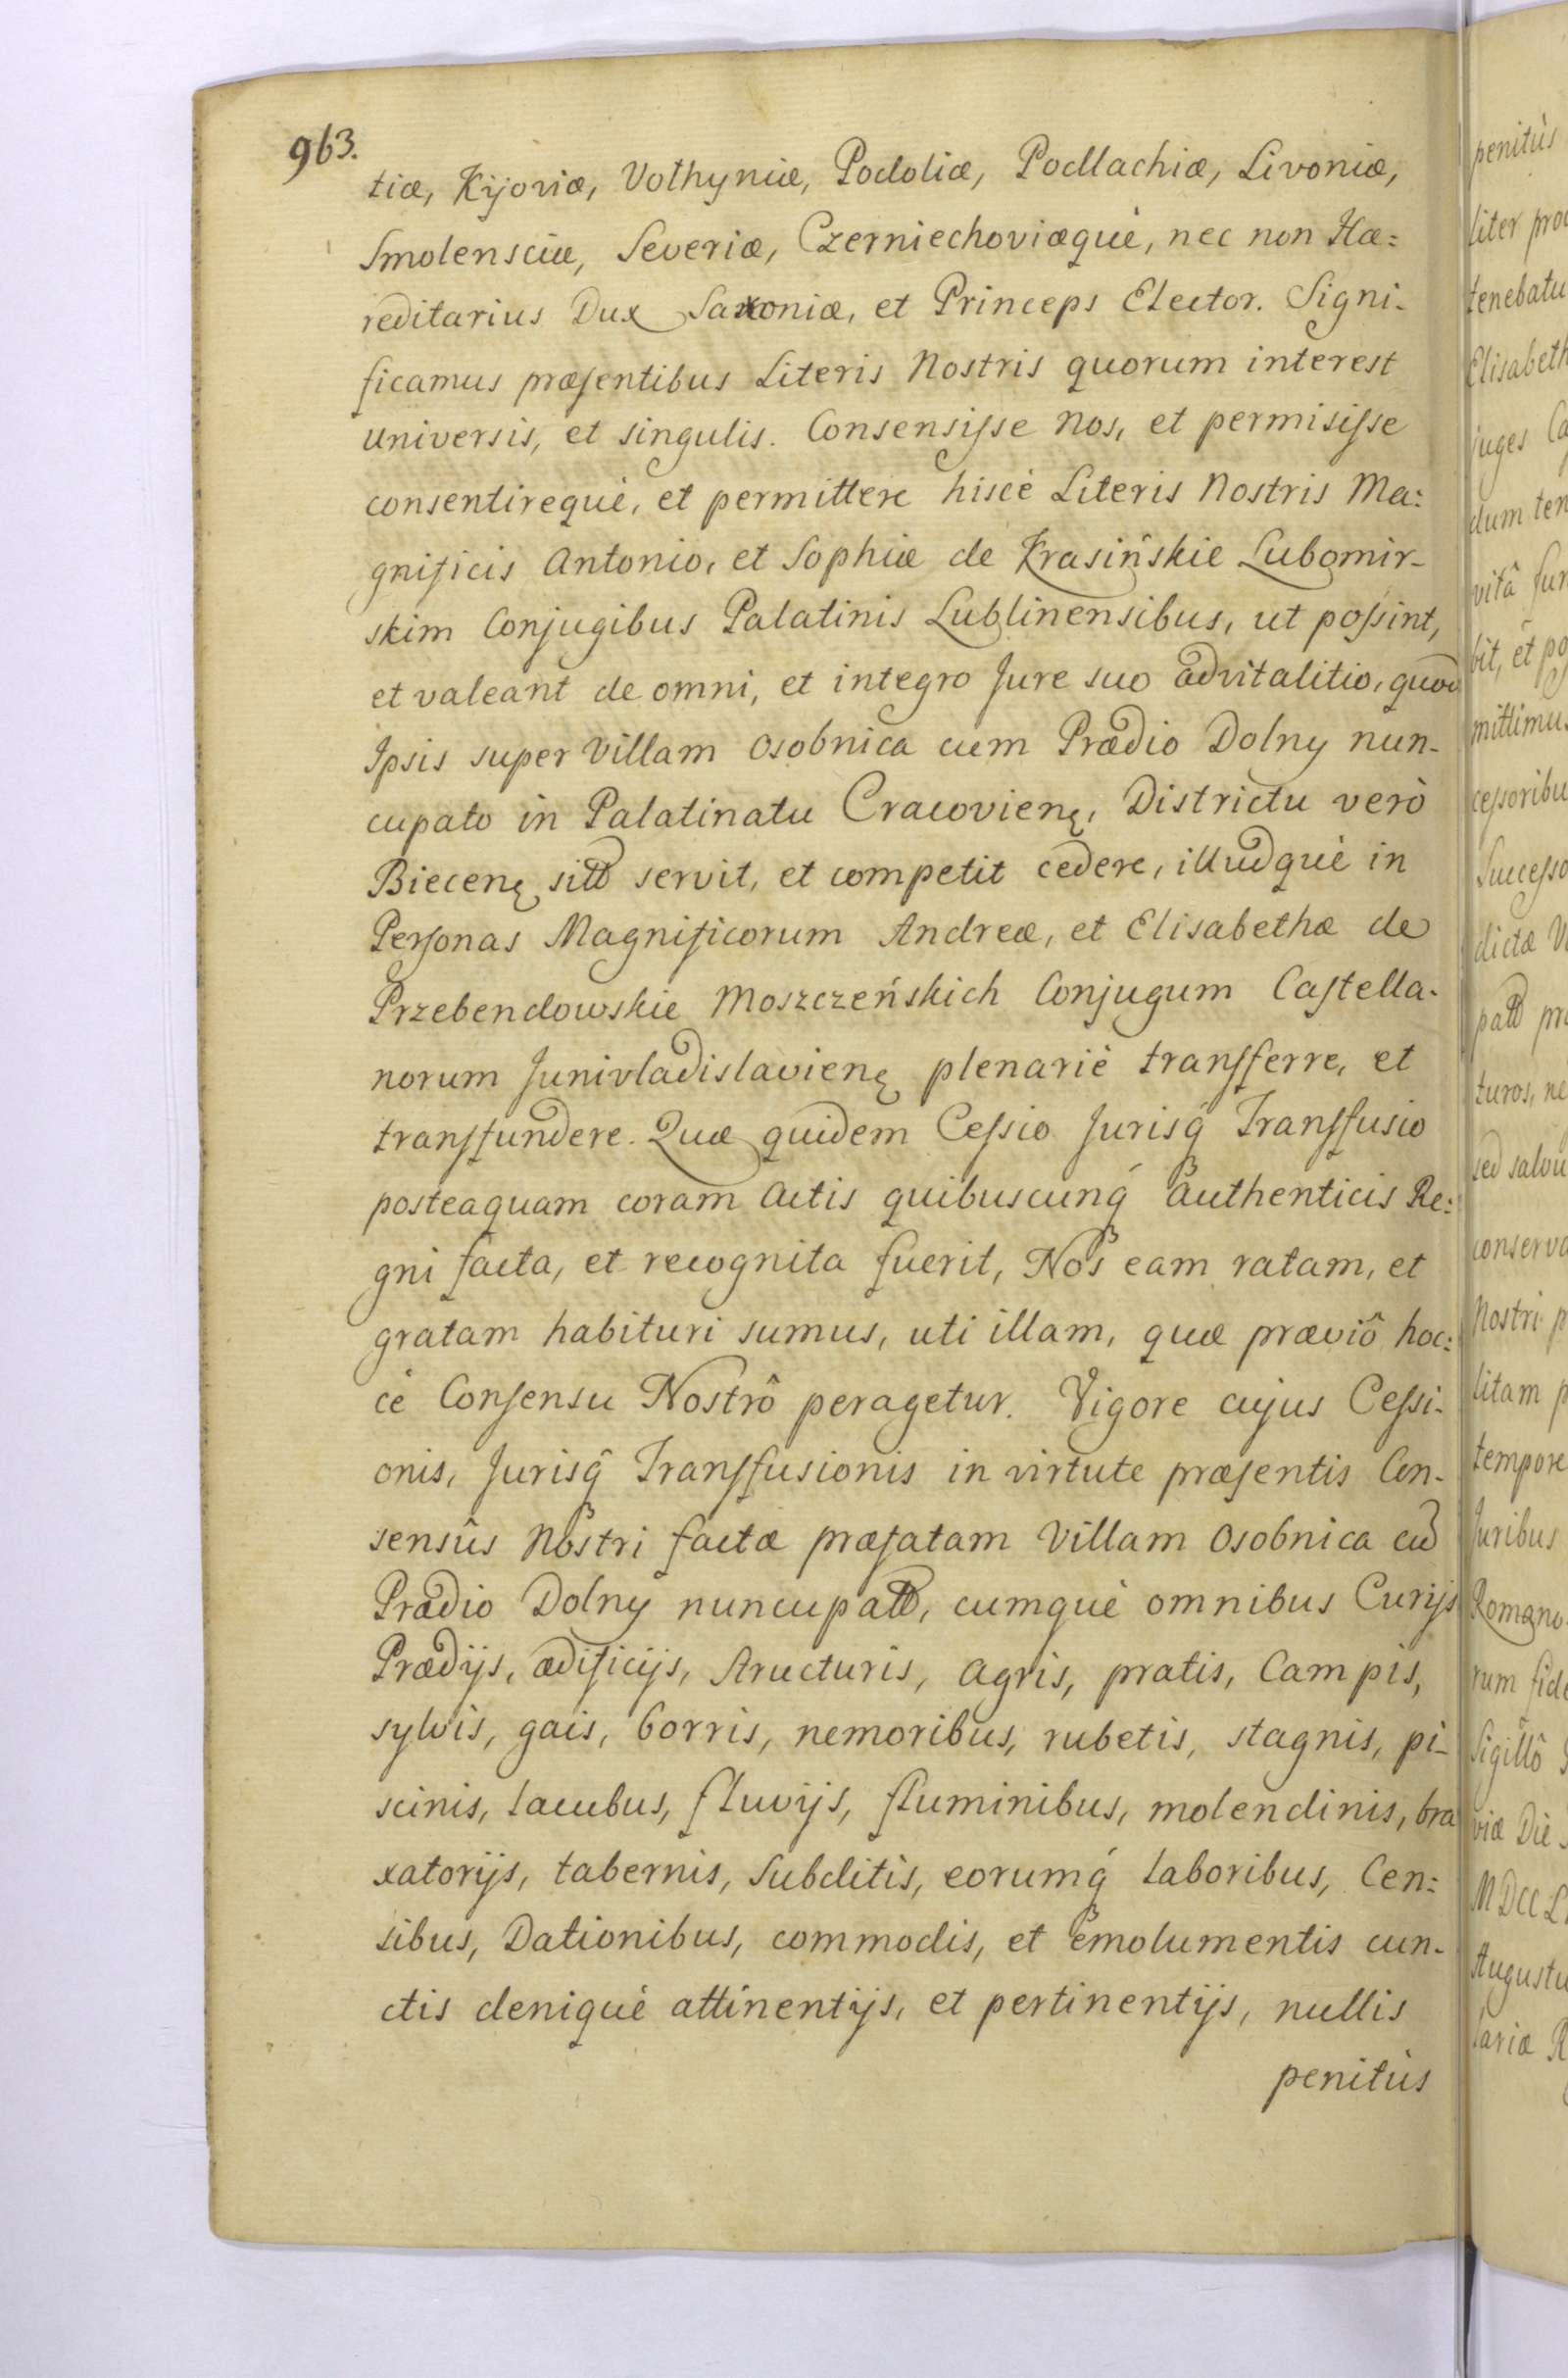 963.
tiæ, Kijoviæ, Volhyniæ, Podoliæ, Podlachiæ, Livoniæ,
Smolensciæ, Severiæ, Czerniechoviæquè, nec non Hæ:
reditarius Dux Saxoniæ, et Princeps Elector. Signi-
ficamus præsentibus Literis Nostris quorum interest
universis, et singulis. Consensisse Nos, et permisisse
consentirequè, et permittere hiscè Literis Nostris Ma:
gnificis Antonio, et Sophiæ de Krasińskie Lubomir-
skim Conjugibus Palatinis Lublinensibus, ut possint,
et valeant de omni, et integro Jure suo advitalitio, quod
Ipsis super Villam Osobnica cum Prædio Dolny nun-
cupato in Palatinatu Cracovienę, Districtu verò
Biecenę sito servit, et competit cedere, illudquè in
Personas Magnificorum Andreæ, et Elisabethæ de
Przebendowskie Moszczeńskich Conjugum Castella-
norum Junivladislavienę plenariè transferre, et
transfundere. Quæ quidem Cessio Jurisq́ Transfusio
posteaquam coram Actis quibuscunq́ authenticis Re:
gni facta, et recognita fuerit, Nos eam ratam, et
gratam habituri sumus, uti illam, quæ præviô hoc:
cè Consensu Nostrô peragetur. Vigore cujus Cessi-
onis, Jurisq́ Transfusionis in virtute præsentis Con-
sensûs Nostri factæ præfatam Villam Osobnica cū
Prædio Dolny nuncupato, cumquè omnibus Curijs
Prædijs, ædificijs, structuris, agris, pratis, Campis,
sylvis, gais, borris, nemoribus, rubetis, stagnis, pi-
scinis, lacubus, fluvijs, fluminibus, molendinis, bra
xatorijs, tabernis, Subditis, eorumq́ laboribus, Cen:
sibus, Dationibus, commodis, et emolumentis cun-
ctis deniquè attinentijs, et pertinentijs, nullis
penitùs
penitùs
liter pro
tenebatu
Elisabeth
juges Ca
dum ten
vitâ fun
bit, et po
mittimus
cessoribu
Successo
dictæ V
pato pr
turos, ne
sed salvū
conserva
Nostri p
litam p
tempore
Juribus
Romano
rum fide
Sigillô
viæ Die
MDCCL
Augustu
lariæ R